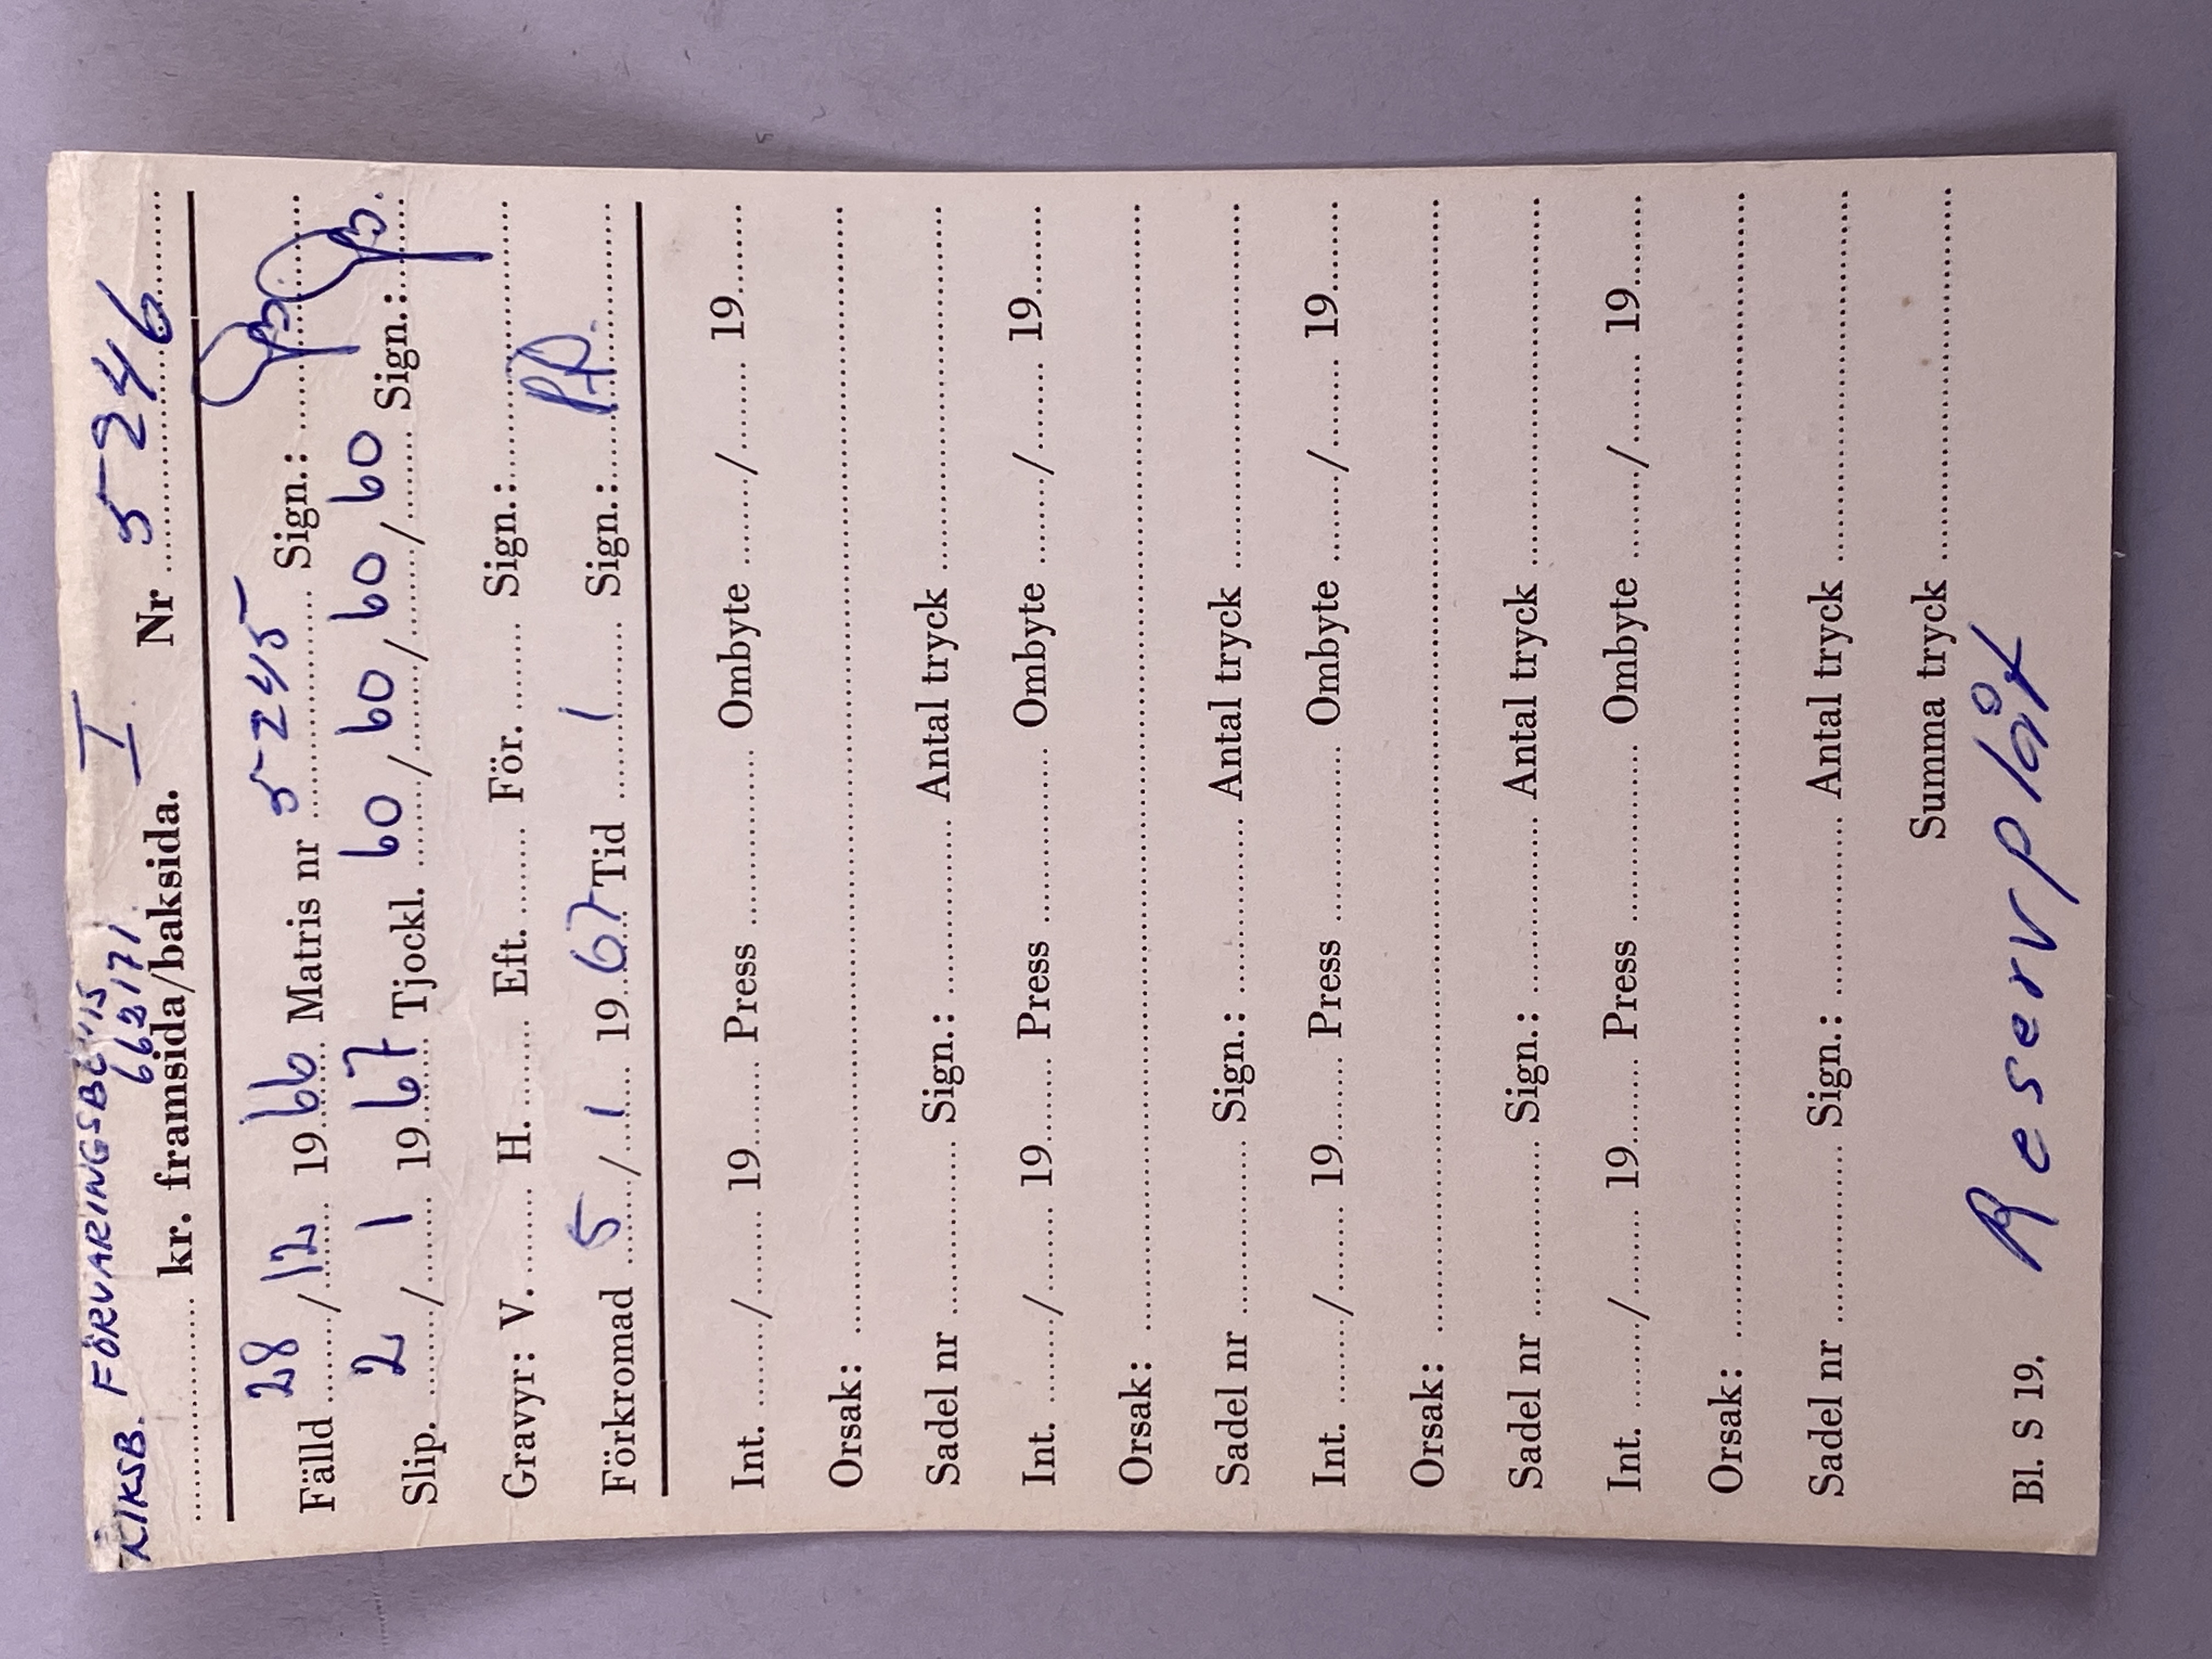 RIKSB. FÖRVARINGSBEVIS
662171
........ kr. framsida/baksida. I Nr 5-246
Fälld 28/12 1966 Matris nr 5-245 Sign.:
Slip. 2/1 1967 Tjockl. 60/60/60/60 Sign.:
Gravyr: V. ........ H. ........ Eft. ........ För. ........ Sign.: ........
Förkromad 5/1 1967 Tid 1 Sign.: P.P.
Int. ......../........ 19........ Press ........ Ombyte ......../........ 19........
Orsak: ........
Sadel nr ........ Sign.: ........ Antal tryck ........
Int. ......../........ 19........ Press ........ Ombyte ......../........ 19........
Orsak: ........
Sadel nr ........ Sign.: ........ Antal tryck ........
Int. ......../........ 19........ Press ........ Ombyte ......../........ 19........
Orsak: ........
Sadel nr ........ Sign.: ........ Antal tryck ........
Int. ......../........ 19........ Press ........ Ombyte ......../........ 19........
Orsak: ........
Sadel nr ........ Sign.: ........ Antal tryck ........
Summa tryck ........
Bl. S 19. Reservplåt